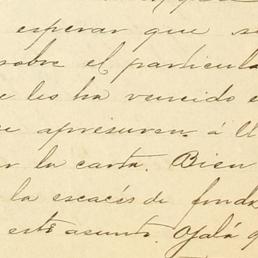 esperar que se
sobre el particula
e les ha vencido e
e apresuren á ll
ar la carta. Bien
la escacés de fond
este asunto. Ojalá q